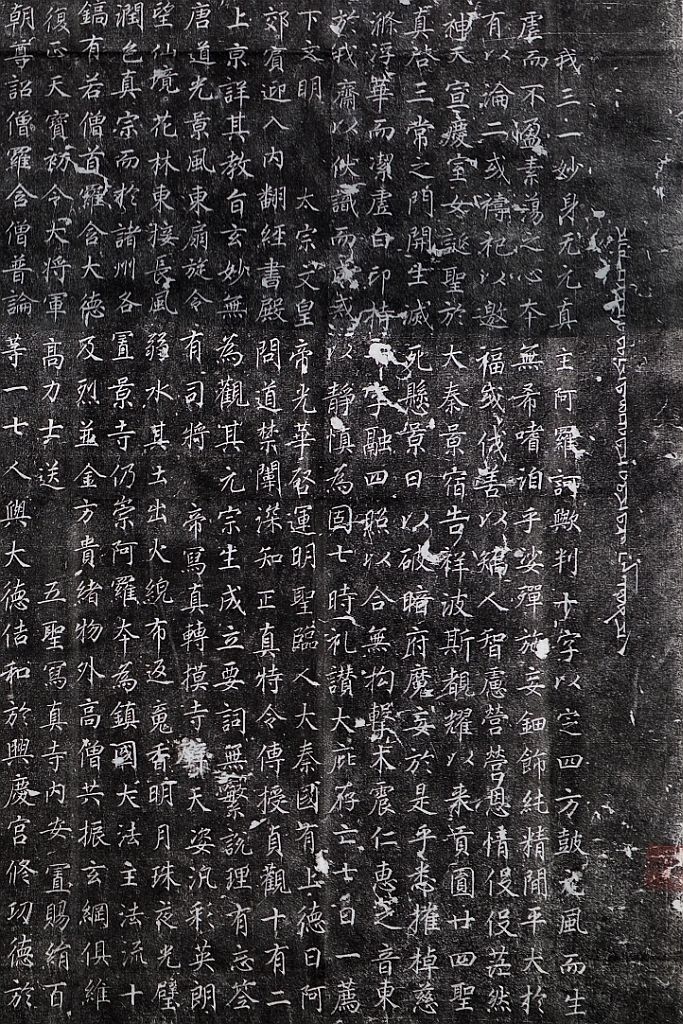 我三一妙身无元真主阿羅訶歟判十字以定四方鼓元風而生
虛而不盈素蕩之心本無希嗜洎乎娑殫施妄鈿飾純精閒平大於
有以淪二或禱祀以邀福或伐善以矯人智慮營營恩情役役茫然
神天宣慶室女誕聖於大秦景宿告祥波斯覩耀以来貢圓廿四聖
真啓三常之門開生滅死懸景日以破暗府魔妄於是乎悉摧棹慈
滌浮華而潔虛白印持十字融四照以合無拘擊木震仁惠之音東
於我齋以伏識而成戒以靜慎為固七時礼讚大庇存亡七日一薦
下文明 太宗文皇帝光華啓運明聖臨人大秦國有上德曰阿
郊賓迎入內翻經書殿問道禁闈深知正真特令傳授貞觀十有二
上京詳其教旨玄妙無為觀其元宗生成立要詞無繁說理有忘筌
唐道光景風東扇旋令有司將 帝寫真轉摸寺壁天姿汎彩英朗
望仙境花林東接長風弱水其土出火綄布返魂香明月珠夜光璧
潤色真宗而於諸州各置景寺仍崇阿羅本為鎮國大法主法流十
鎬有若僧首羅含大德及烈並金方貴緒物外高僧共振玄網俱維
復正天寶初令大將軍高力士送 五聖寫真寺內安置賜絹百
朝尊詔僧羅含僧普論等一七人與大德佶和於興慶宮修功德於